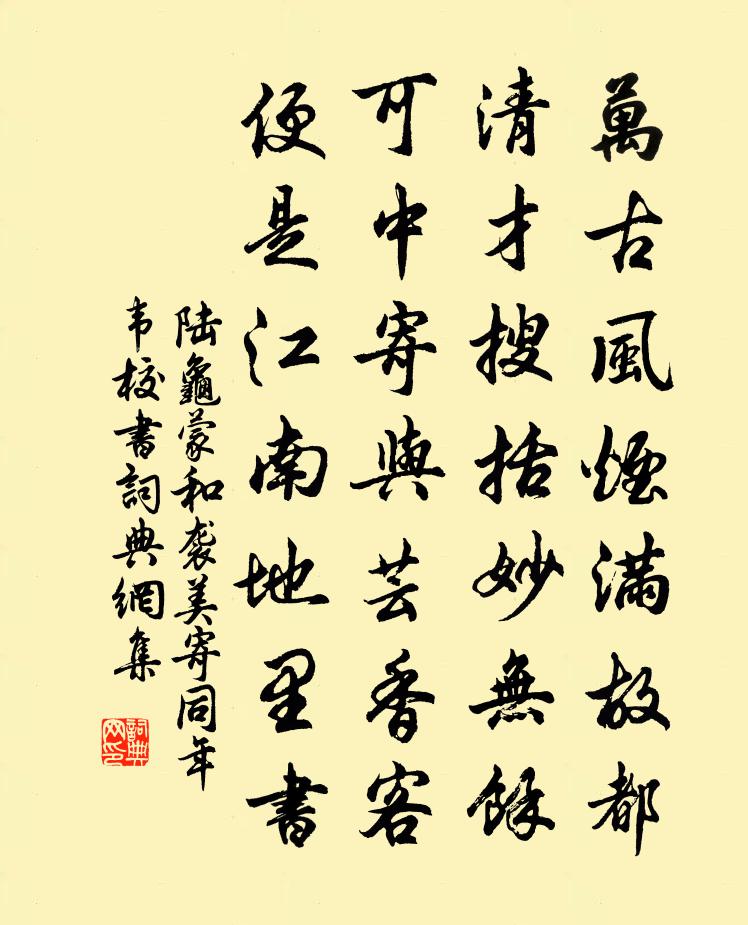 萬古風煙滿故都
清才搜括妙無餘
可中寄與芸香客
便是江南地里書
陆龜蒙和袭美寄同年
韦校書詞典網集
詞典网印